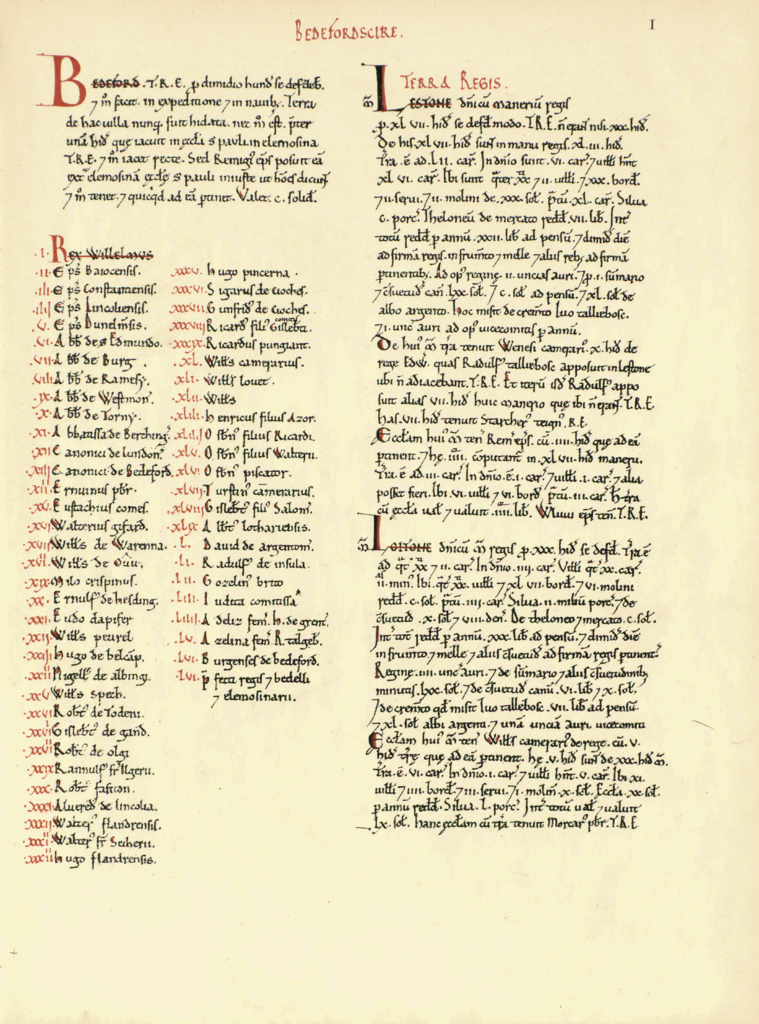 BEDEFORDSCIRE.
I
BEDEFORD. T.R.E. p dimidio hund se defdeb.
7 m facit. in expeditione 7 in navib. Terra
de hac villa nunq. fuit hidata. nec m est. pter
unā hid que iacuit in eccła S pauli in elemosina
T.R.E. 7 m iacet recte. Sed Remigi eps posuit eā
ext elemosinā eccłę S pauli iniuste ut hões dicunt
7 m tenet. 7 quicqd ad eā ptinet. Valet. c. solid.
.I. REX Willelmus
.II. Eps Baiocensis.
.III. Eps Constantiensis.
.IIII. Eps Lincoliensis.
.V. Eps Dunelmsis.
.VI. Abb de S Edmundo.
.VII. Abb de Burg.
.VIII. Abb de Ramesy.
.IX. Abb de Westmon.
.X. Abb de Torny.
.XI. Abbatissa de Berching.
.XII. Canonici de Lundon.
.XIII. Canonici de Bedeford.
.XIIII. Ernuinus pbr.
.XV. Eustachius comes.
.XVI. Walterius gifard.
.XVII. Wills de Warenna.
.XVIII. Wills de Ouu.
.XIX. Milo crispinus.
.XX. Ernulf de hesding.
.XXI. Eudo dapifer
.XXII. Wills peurel
.XXIII. Hugo de belcāp.
.XXIIII. Nigell de albingi
.XXV. Wills spech.
.XXVI. Robt de Todeni.
.XXVII. Gislebt de gand.
.XXVIII. Robt de olgi
.XXIX. Rannulf fr Ilgerii.
.XXX. Robt fafiton.
.XXXI. Alvered de lincolia.
.XXXII. Walter flandrensis.
.XXXIII. Walter fr Seiherii.
.XXXIIII. Hugo flandrensis.
.XXXV. Hugo pincerna.
.XXXVI. Sigarus de cioches.
.XXXVII. Gunfrid de cioches.
.XXXVIII. Ricard fili Gislebti comitis
.XXXIX. Ricardus pungiant.
.XL. Wills camerarius.
.XLI. Wills lovet.
.XLII. Wills
.XLIII. Henricus filius Azor.
.XLIIII. Osbn filius Ricardi.
.XLV. Osbn filius Walterii.
.XLVI. Osbn piscator.
.XLVII. Turstin camerarius.
.XLVIII. Gislebt fili Salom.
.XLIX. Albt lothariensis.
.L. David de argentom.
.LI. Radulf de insula.
.LII. Gozelin brito
.LIII. Iudita comitissa
.LIIII. Adeliz fem. H. de grent.
.LV. Azelina fem. R. tailgeb.
.LVI. Burgenses de bedeford.
.LVII. pfecti regis 7 bedelli
7 elemosinarii.
TERRA REGIS.
m LESTONE dnicū maneriū regis
p. xl.vii. hid se defd modo. T.R.E. n erant nisi. xxx. hid.
De his xl.vii. hid sunt in manu regis. xl.iii. hid.
Tra. ē ad. l.ii. car. In dnio sunt. vi. car. 7 uilli hnt
xl.vi. car. Ibi sunt qter xx. 7 ii. uilli. 7 xxx. bord.
7 ii. servi. 7 ii. molini de. xxx. sol. ptū. xl. car. Silva
c. porc. Theloneū de mercato redd. vii. lib. Int
totū redd p annū. xxii. lib ad pensū. 7 dimid diē
ad firmā regis. in frumto 7 melle 7 aliis reb, ad firmā
ptinentib,. Ad op reginę. ii. uncias auri. 7 p. i. sumario
7 csuetud can. lxv. sol. 7 c. sol ad pensū. 7 xl. sol de
albo argento. Hoc misit de cremto Iuo tallebosc.
7 i. unc auri ad op vicecomitis p annū.
De hui m tra tenuit Wenesi camerari. x. hid de
rege Edw. quas Radulf tallebosc apposuit in Lestone
ubi n adiacebant. T.R.E. Et iterū isd Radulf appo
suit alias vii. hid huic manerio que ibi n erant. T.R.E.
Has. vii. hid tenuit Starcher teign. R.E.
Eccłam hui m ten Remi eps. cū. iiii. hid que ad eā
ptinent. 7 hę. iiii. cputant in. xl.vii. hid manerii.
Tra. ē ad. iiii. car. In dnio. ē. i. car. 7 uilli. i. car. 7 alia
posset fieri. Ibi. vi. uilli. 7 vi. bord. ptū. iiii. car. H tra
cū eccła ual. 7 ualuit. iiii. lib. Wluui eps ten. T.R.E.
m LOITONE dnicū m regis p. xxx. hid se defd. Tra ē
ad qt xx. 7 ii. car. In dnio. iiii. car. Uilli qt xx. car.
ii. min. Ibi. qt xx. uilli. 7 xl.vii. bord. 7 vi. molini
redd. c. sol. ptū. iiii. car. Silva. ii. miliū porc. 7 de
csuetud. x. sol 7 viii. den. De theloneo 7 mercato. c. sol.
Int totū redd p annū. xxx. lib ad pensū. 7 dimid diē
in frumto 7 melle 7 aliis csuetud ad firmā regis ptinent.
Reginę. iiii. unc auri. 7 de sumario 7 aliis csuetudinib,
minutis. lxx. sol. 7 de csuetud canū. vi. lib 7 x. sol.
7 de cremto qd misit Iuo tallebosc. vii. lib ad pensū.
7 xl. sol albi argenti. 7 unā unciā auri. vicecomiti
Eccłam hui m ten Willi camerari de rege. cū. v.
hid tre que ad eā ptinent. He. v. hid sunt de xxx. hid m.
Tra. ē. vi. car. In dnio. i. car. 7 uilli hnt. v. car. Ibi xi.
uilli 7 iiii. bord. 7 iii. servi. 7 i. molin. x. sol. Eccła. xx. sol.
p annū redd. Silva. l. porc. Int totū ual 7 ualuit
lx. sol. Hanc eccłam cū tra tenuit Morcar pbr. T.R.E.